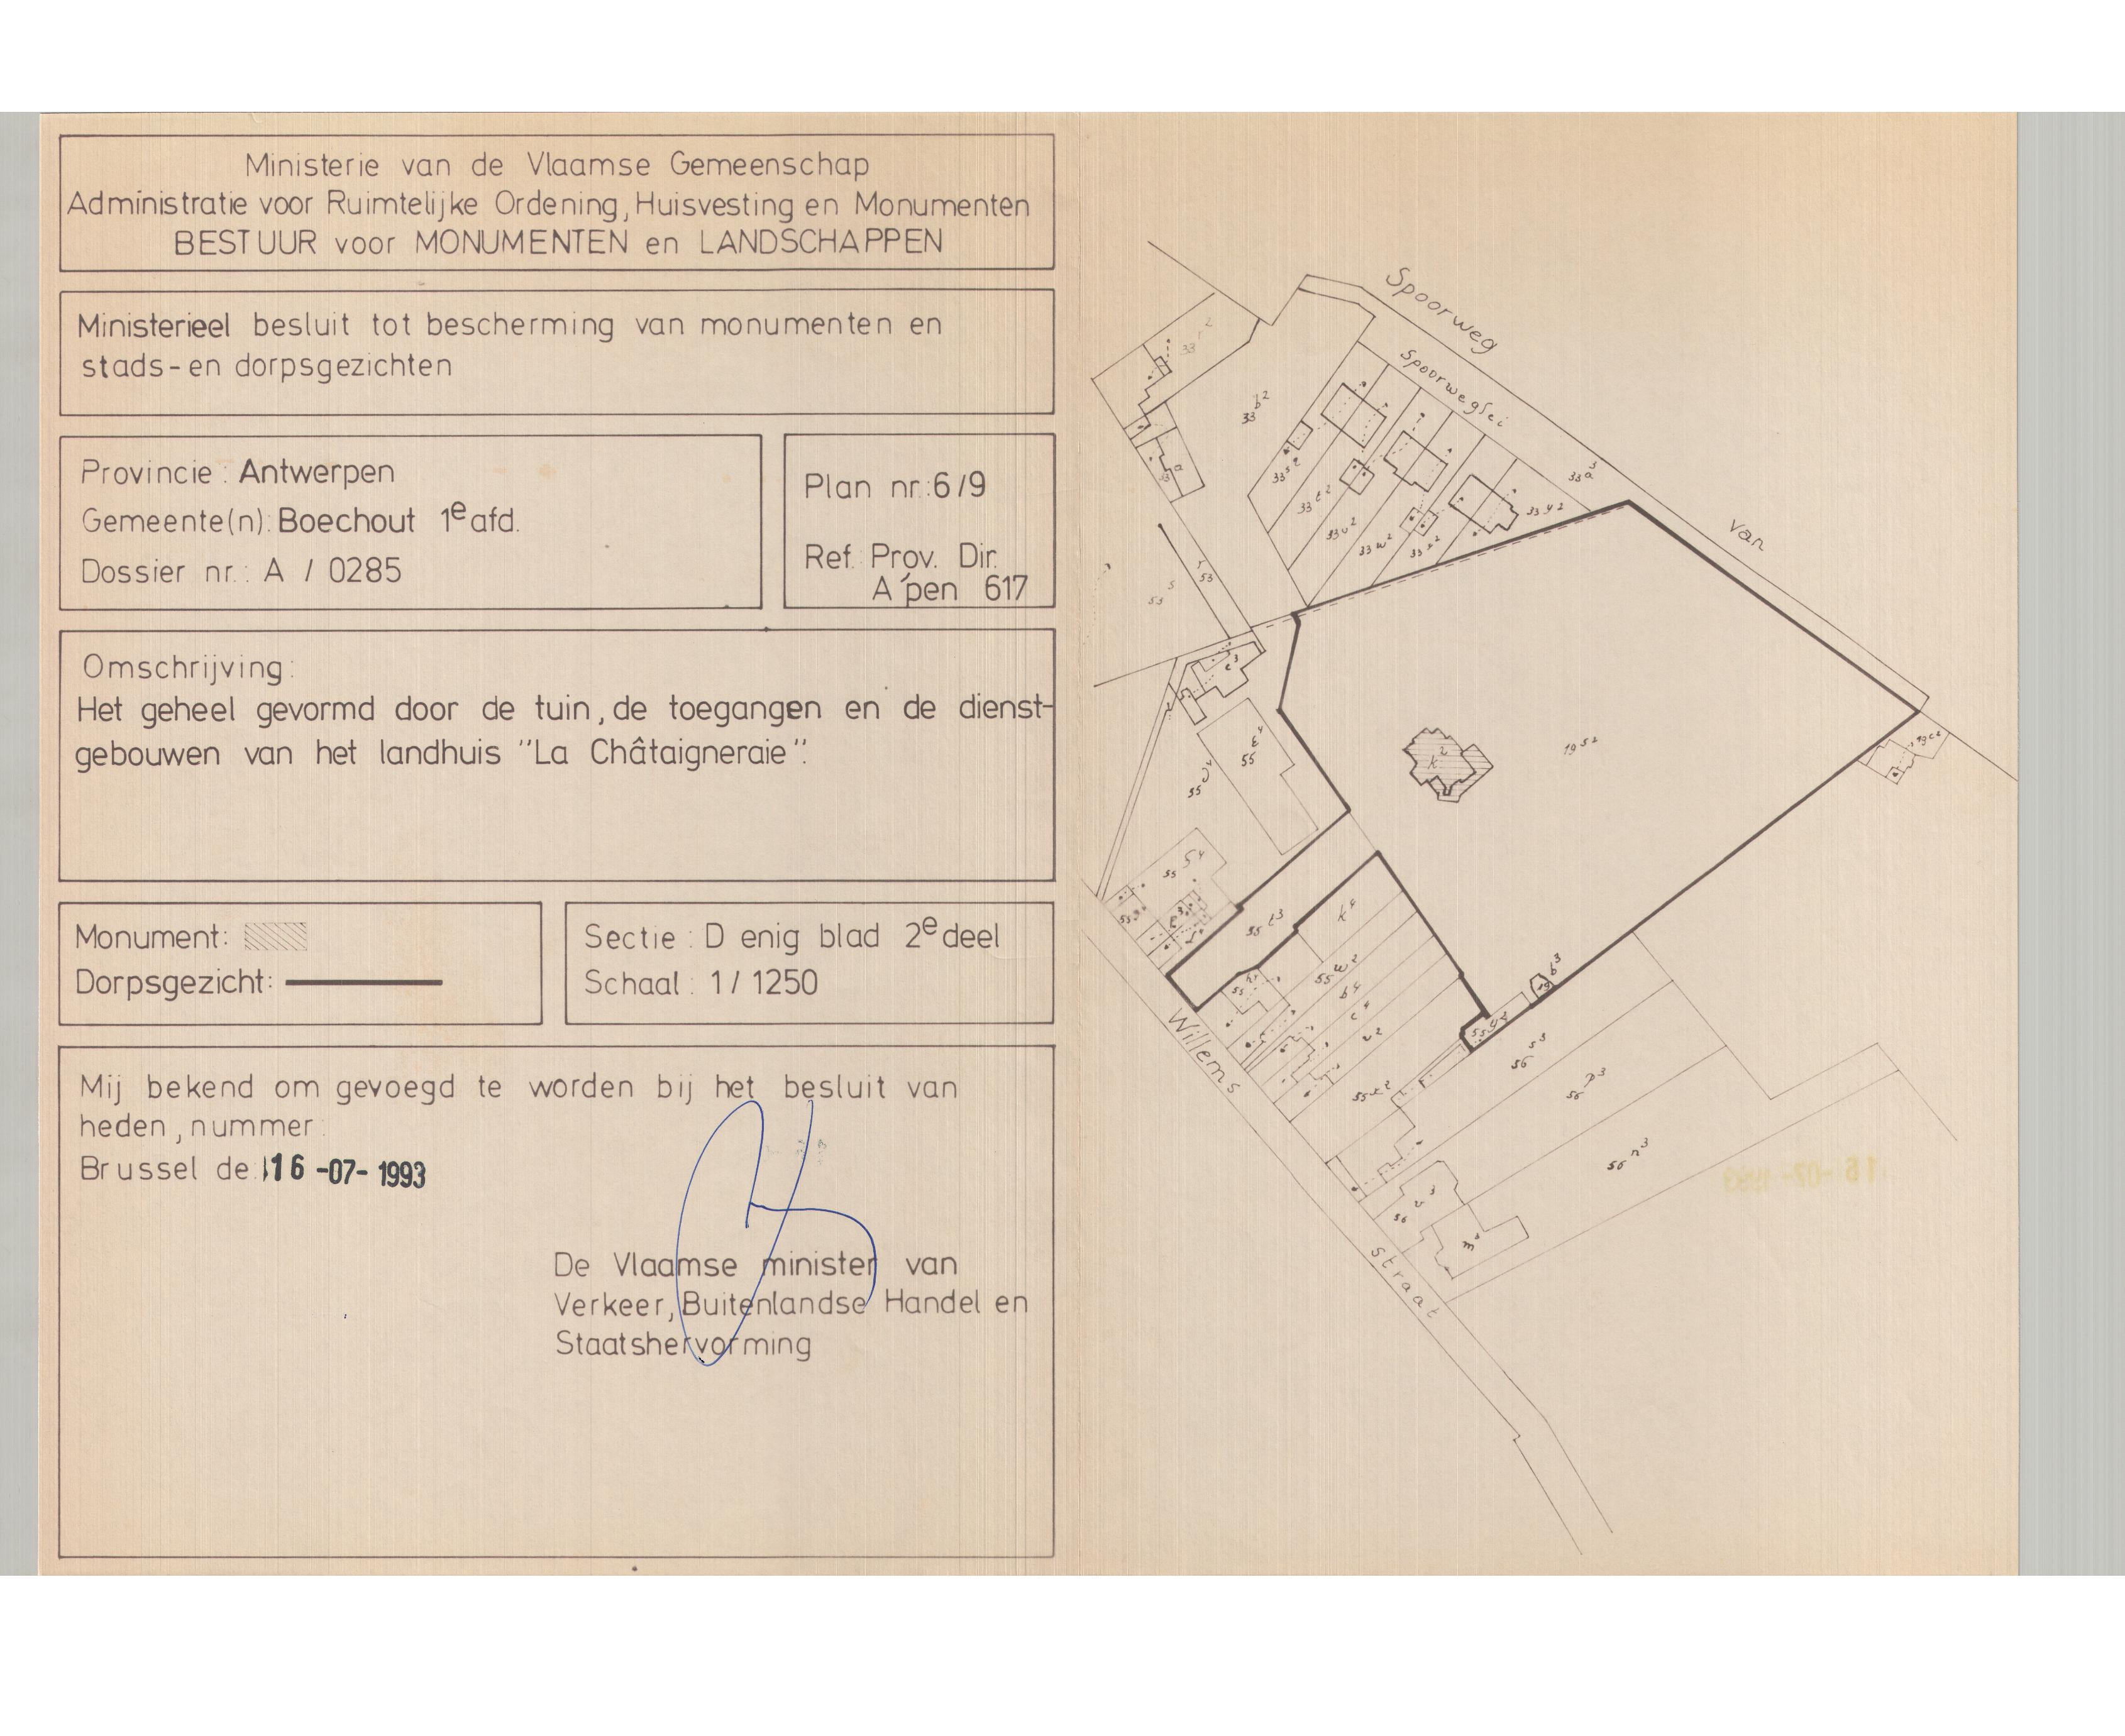 Ministerie van de Vlaamse Gemeenschap
Administratie voor Ruimtelijke Ordening, Huisvesting en Monumenten
BESTUUR voor MONUMENTEN en LANDSCHAPPEN
Ministerieel besluit tot bescherming van monumenten en
stads- en dorpsgezichten
Provincie : Antwerpen
Gemeente(n): Boechout 1e afd.
Dossier nr.: A / 0285
Plan nr.: 6/9
Ref. Prov. Dir.
A'pen 617
Omschrijving:
Het geheel gevormd door de tuin, de toegangen en de dienst-
gebouwen van het landhuis "La Châtaigneraie".
Monument:
Dorpsgezicht:
Sectie : D enig blad 2e deel
Schaal : 1 / 1250
Mij bekend om gevoegd te worden bij het besluit van
heden, nummer:
Brussel de: 16 -07- 1993
De Vlaamse minister van
Verkeer, Buitenlandse Handel en
Staatshervorming
Spoorweg
Spoorweglei
33 b2
33 s2
33 t2
33 v2
33 w2
33 x2
33 y2
van
53
k2
55
k4
b4
c4
56
Willems
straat